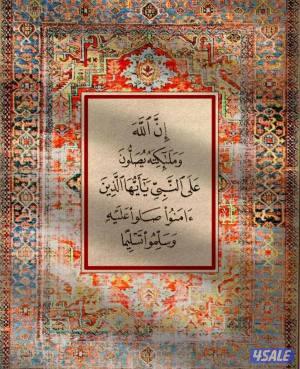 إِنَّ ٱللَّهَ
وَمَلَٰٓئِكَتَهُۥ يُصَلُّونَ
عَلَى ٱلنَّبِىِّ يَٰٓأَيُّهَا ٱلَّذِينَ
ءَامَنُوا۟ صَلُّوا۟ عَلَيْهِ
وَسَلِّمُوا۟ تَسْلِيمًا
4SALE